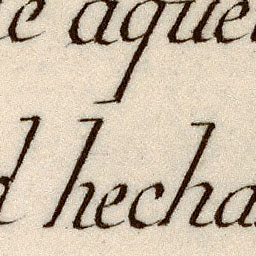 e aquel
d hecha